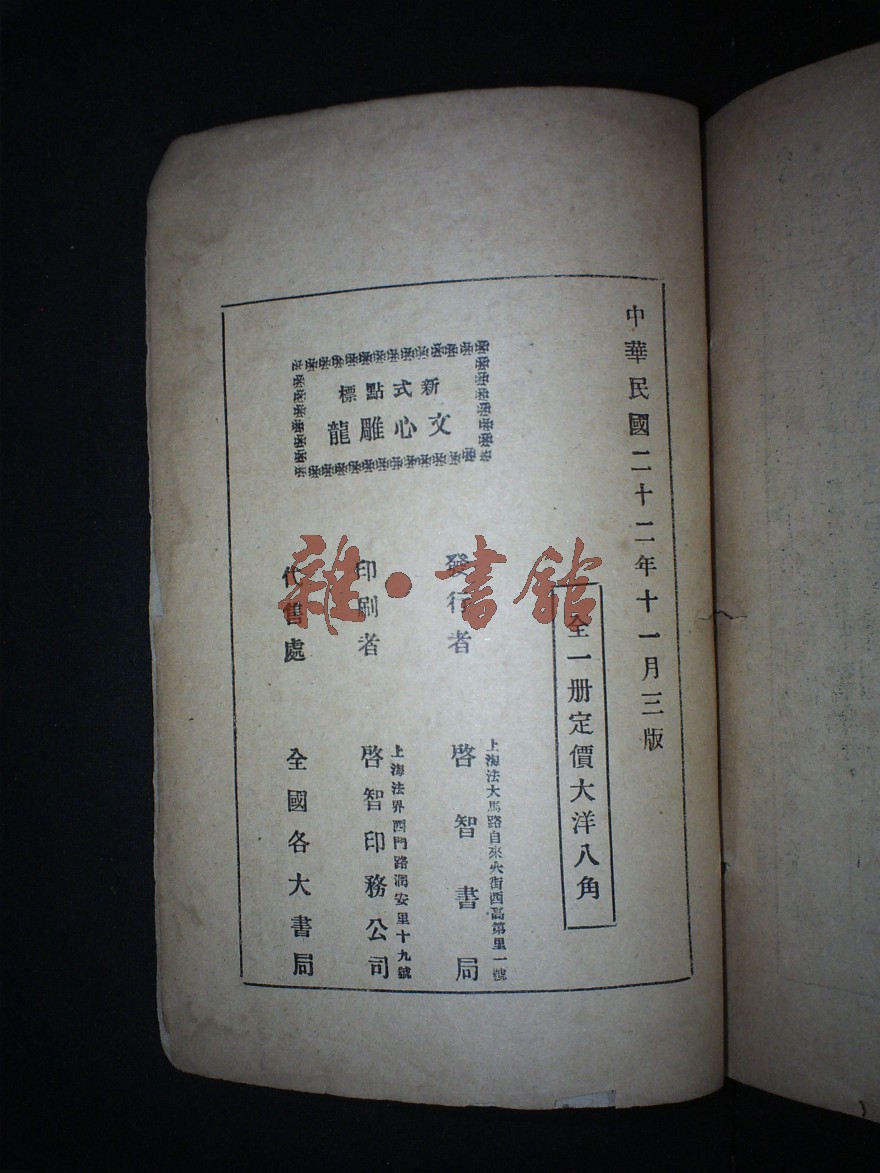 中華民國二十二年十一月三版
全一册定價大洋八角
新式點標
文心雕龍
發行者
上海法大馬路自來火街西高第里一號
啓智書局
印刷者
上海法界西門路潤安里十九號
啓智印務公司
代售處
全國各大書局
雜·書館